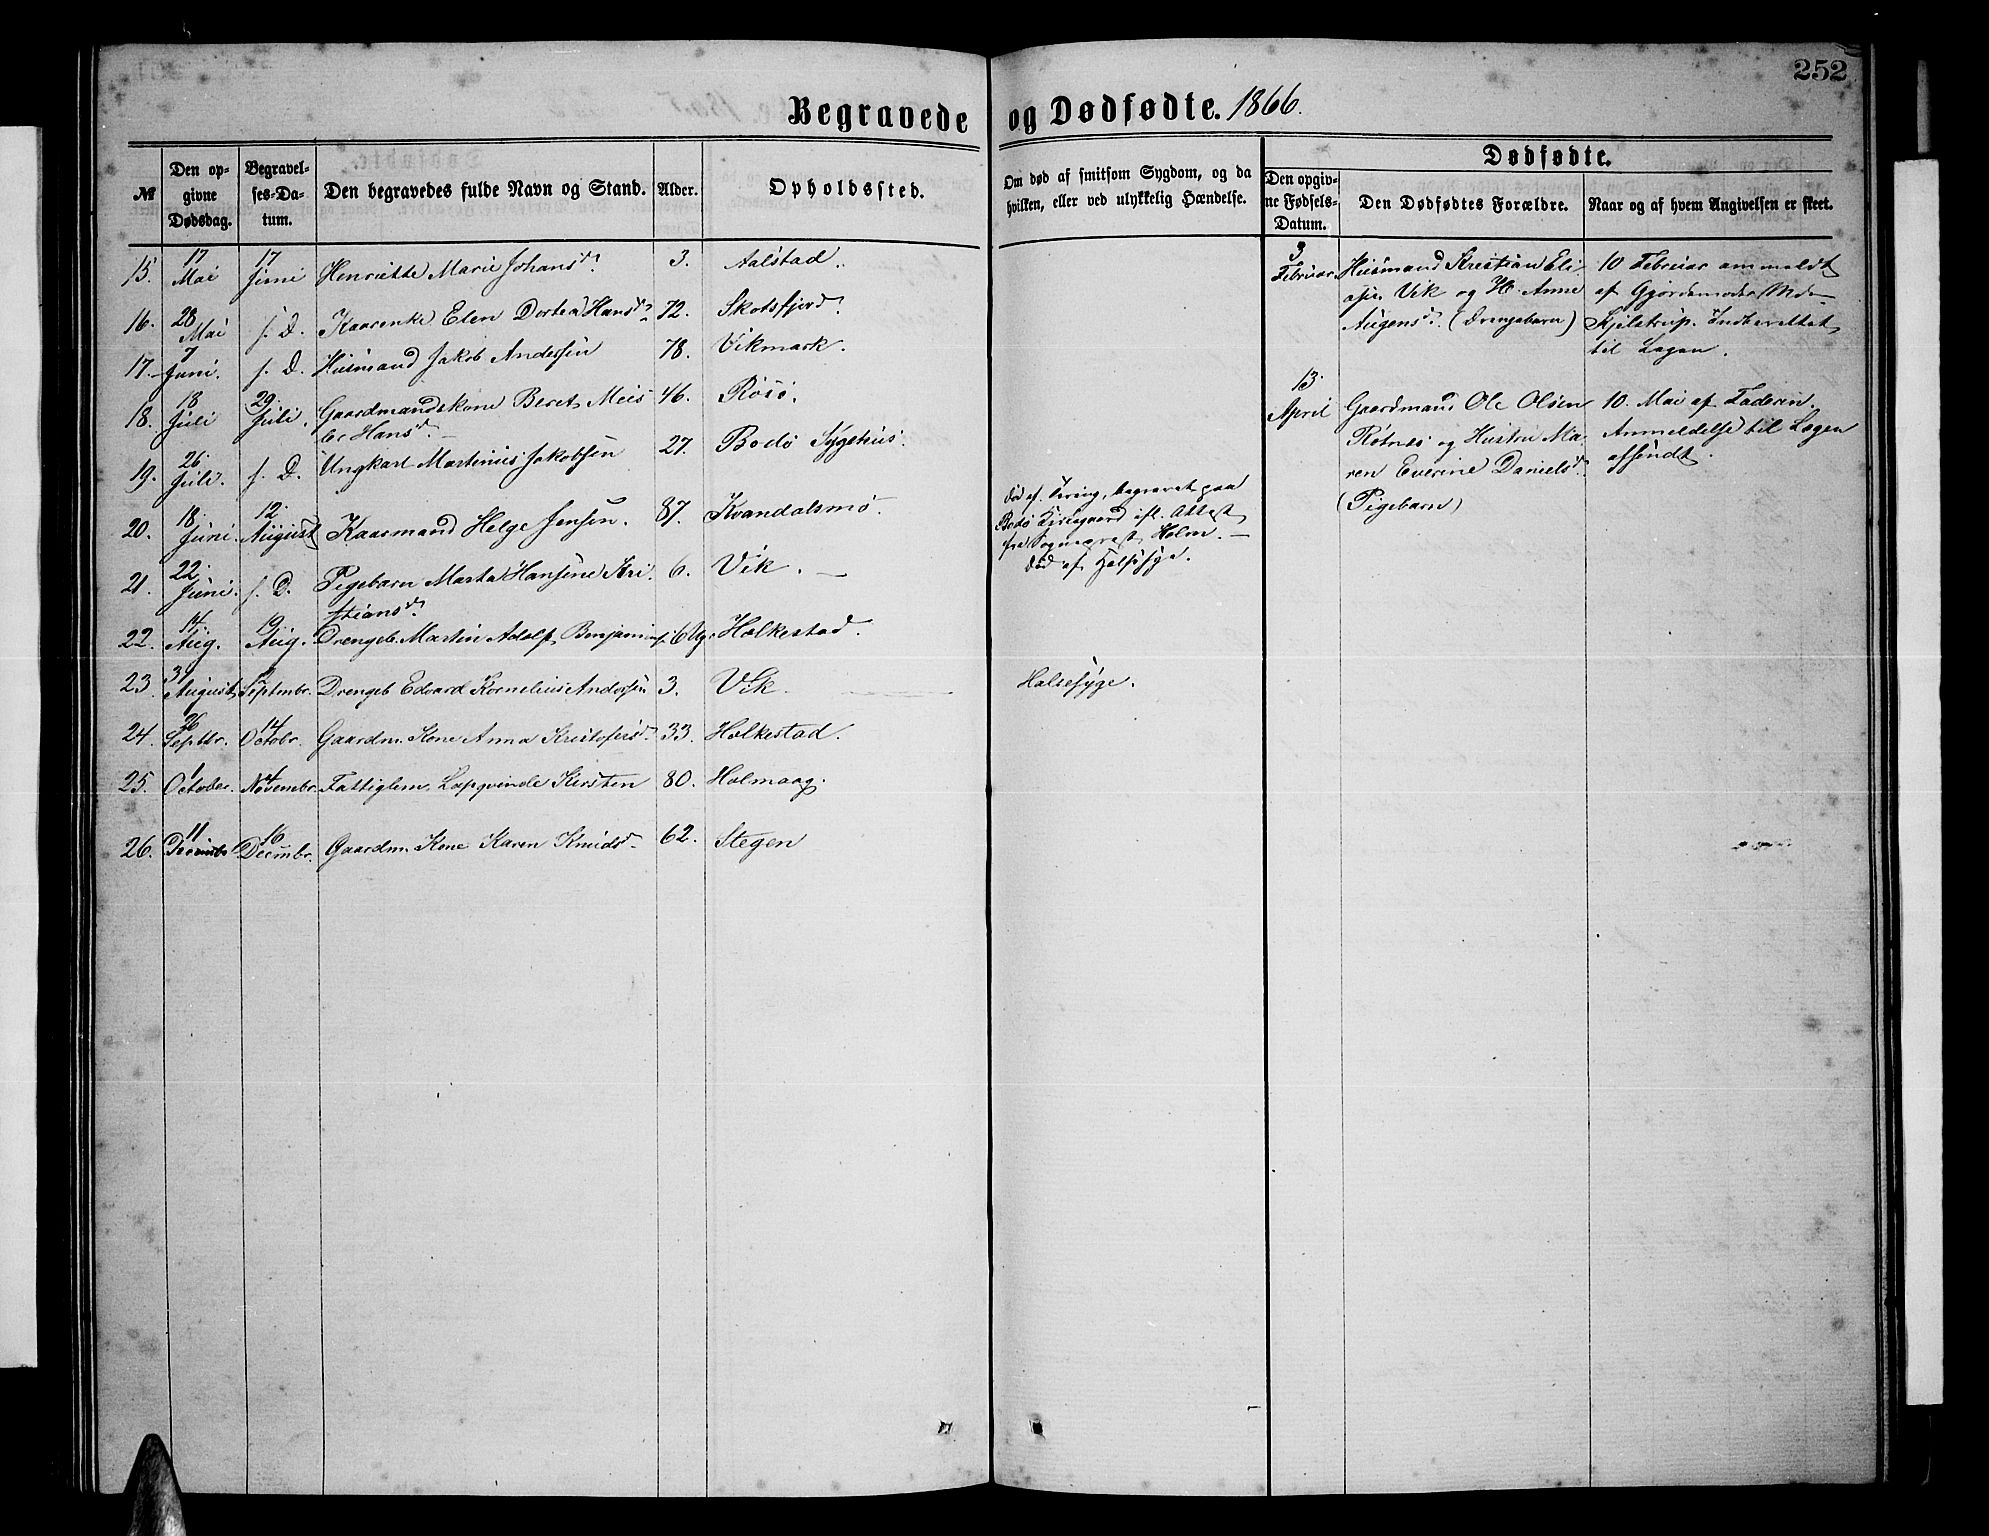 252
Begravede og Dødfødte. 1866.
№ Den opgivne Dødsdag. Begravelses-Datum. Den begravedes fulde Navn og Stand. Alder. Opholdssted. Om død af smitsom Sygdom, og da hvilken, eller ved ulykkelig Hændelse.
Dødfødte.
Den opgivne Fødsels-Datum. Den Dødfødtes Forældre. Naar og af hvem Angivelsen er skeet.
15. 17 Mai 17 Juni Henriette Marie Johansd. 3. Aalstad.
16. 28 Mai s. D. Kaarenke Elen Dortea Hansd. 72. Skotsfjord.
17. 7 Juni. s. D. Husmand Jakob Andersen 78. Vikmark.
18. 18 Juli 29 Juli. Gaardmandskone Beret Meis
ler Hansd. 46. Røsø.
19. 26 Juli. s. D. Ungkarl Martinus Jakobsen 27. Bodø Sygehus.
død af Tæring, begravet paa
Bodø Kirkegaard ifl. Attest
fra Sognepræst Holm.
20. 18 Juni. 12 August Kaarmand Helge Jensen. 87. Kvandalsmo.
21. 22 Juni. s. D. Pigebarn Marta Hansine Kri
stiansd. 6. Vik.
død af Halssyge.
22. 14 Aug. 19 Aug. Drengeb. Martin Adolf Benjamins. 6 Ug. Holkestad.
23. 31 August Septmbr. Drengeb Edvard Kornelius Andersen 3. Vik. Halssyge.
24. 26 Septbr. 14 Octobr. Gaardm. Kone Anna Kristofersd. 33. Holkestad.
25. 1 October. 4 Novembr. Fattiglem, Lapqvinde Kirsten 80. Holmaag.
26. 11 Decembr 16 Decmbr. Gaardm. Kone Karen Knudsd. 62. Stegen
3 Februar Husmand Kristian Eli
assn. Vik og H. Anne
Augensd. (Drengebarn)
10 Februar anmeldt
af Gjordemoder Md.
Kjelstrup. Indberettet
til Lægen.
13 April Gaardmand Ole Olsen
Røtnes og Hustru Ma
ren Everine Danielsd.
(Pigebarn)
10. Mai af Faderen.
Anmeldelse til Lægen
afsendt.